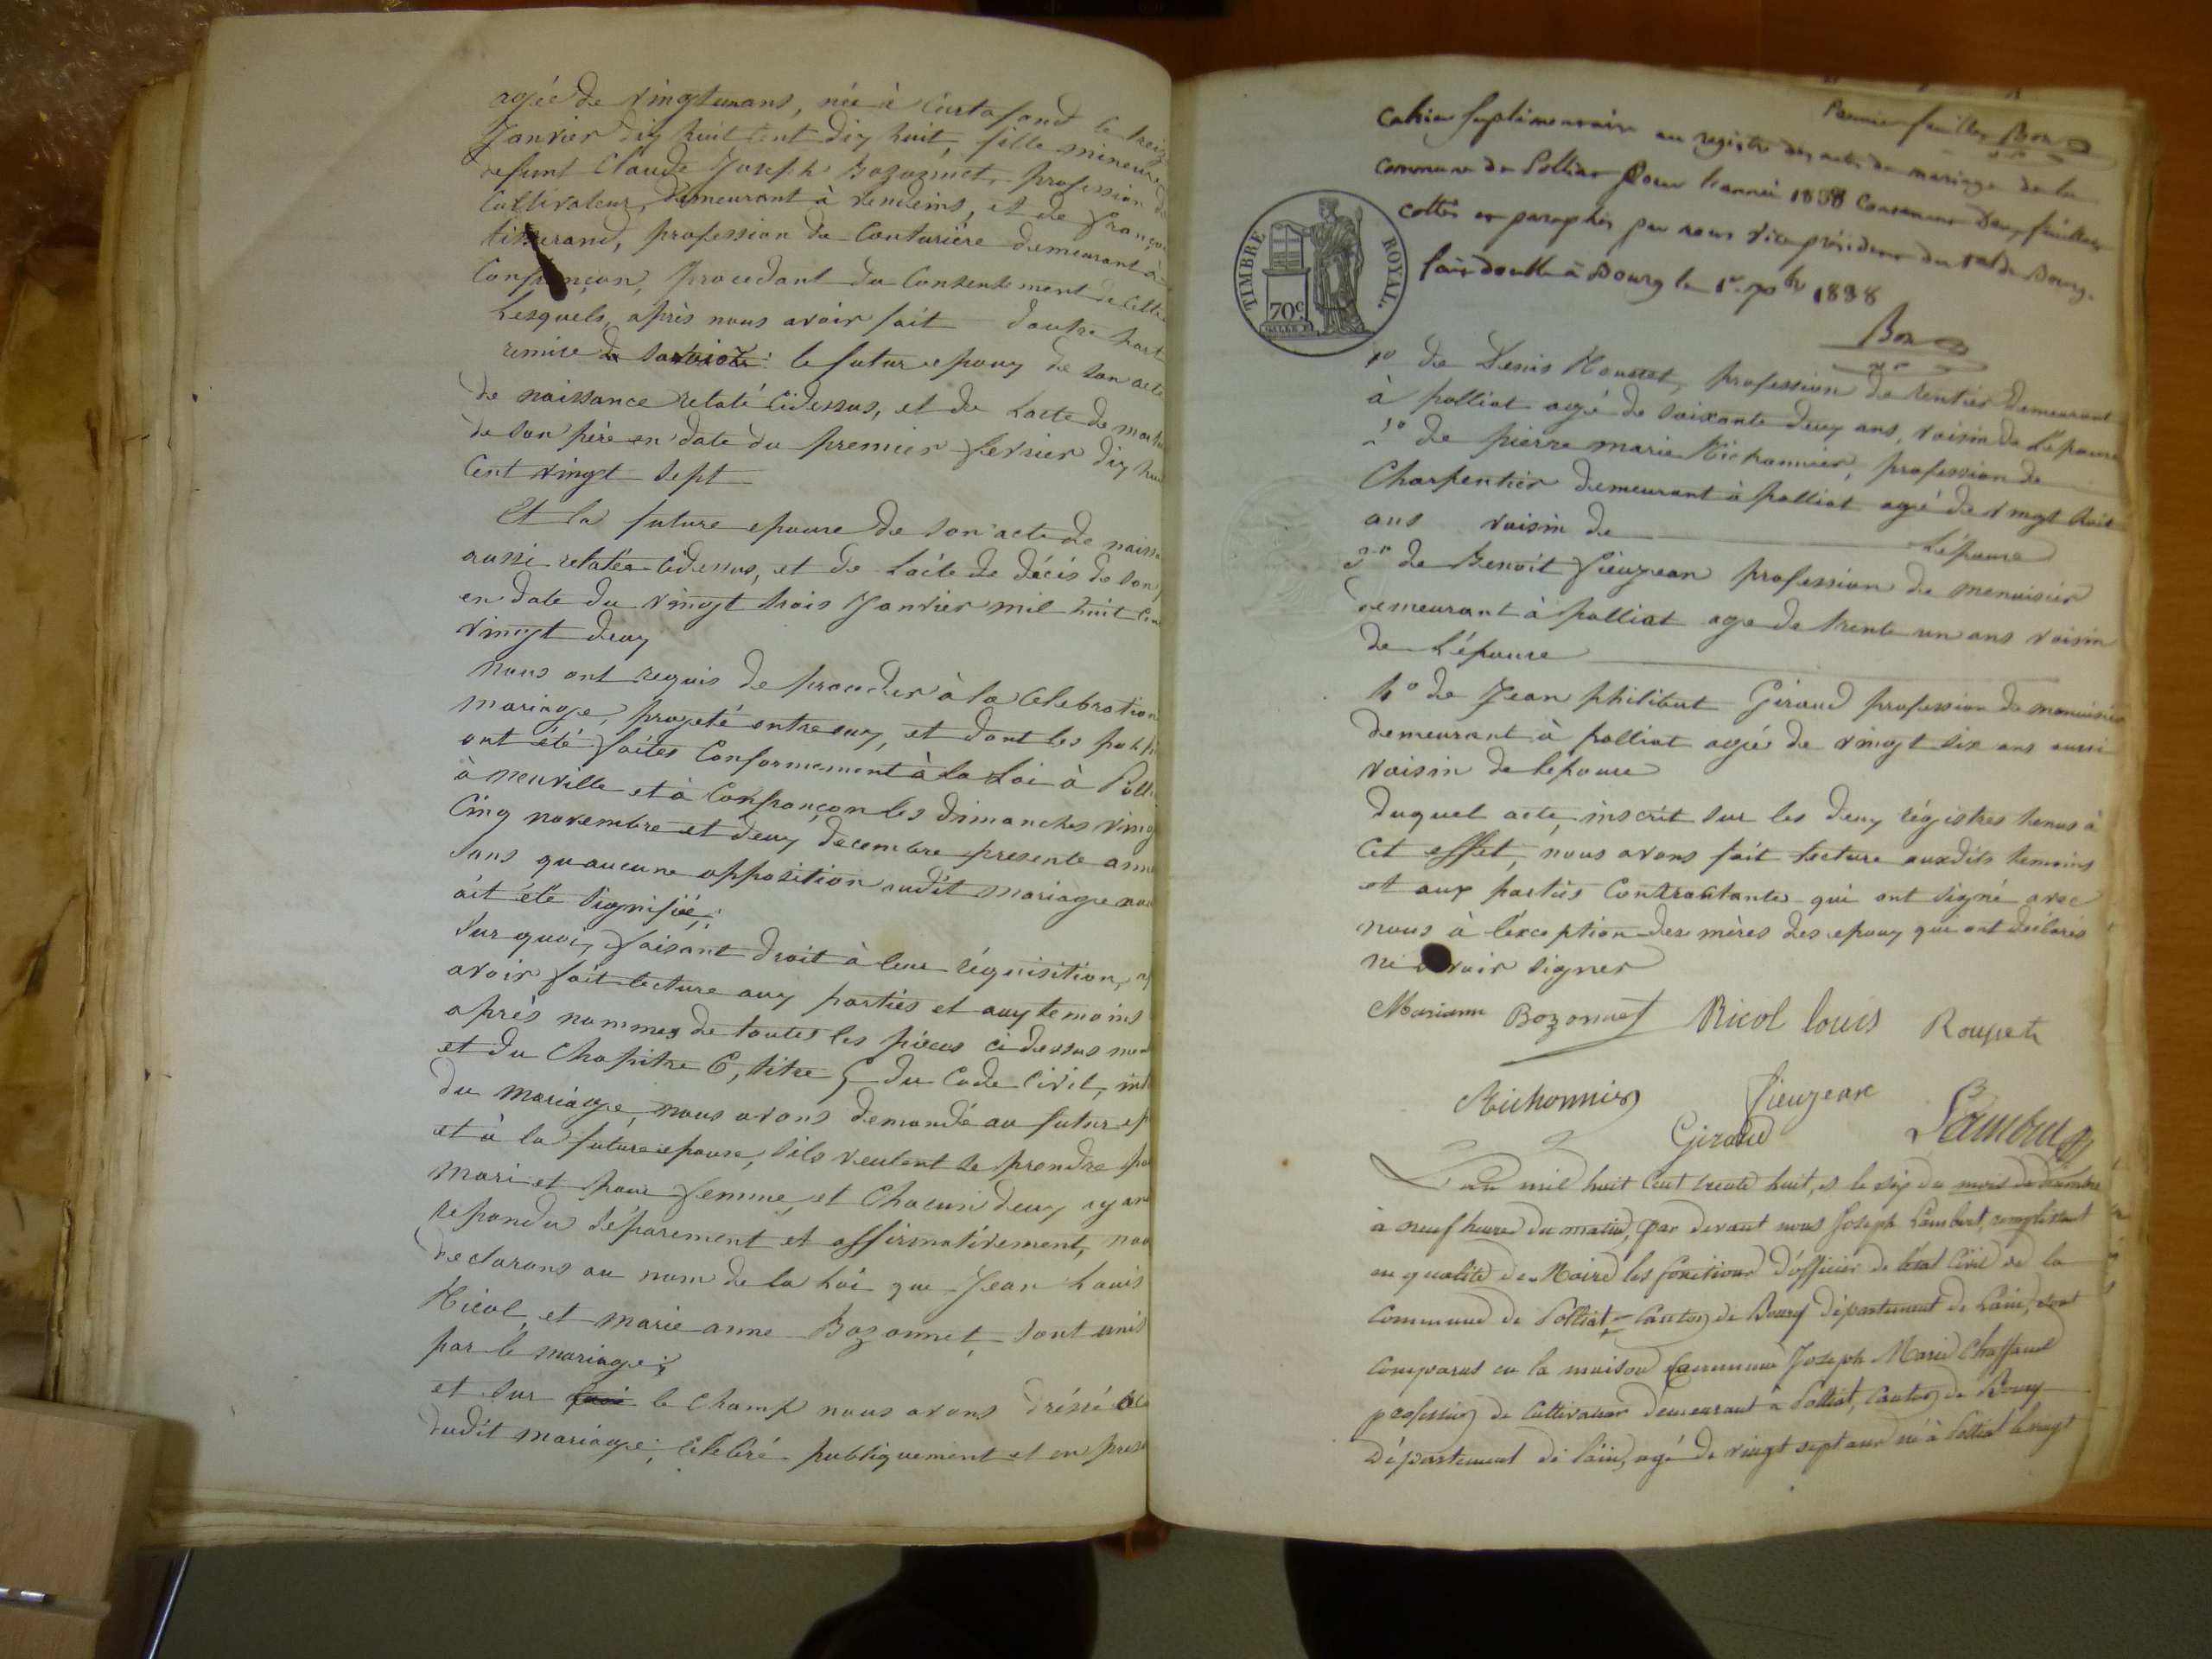 agée de vingt un ans, née à Curtafond le treize
Janvier dix huit cent dix huit, fille mineure de
defunt Claude Joseph Bozonnet, profession de
Cultivateur, demeurant à vendeins, et de françoise
tisserand, profession de Couturière demeurant à
Confrançon, procedant du Consentement de Celle
Lesquels, après nous avoir fait d'autre part
remise la savoir : le futur epoux de son acte
de naissance relaté Cidessus, et de Lacte de mort
de son père en date du premier fevrier dix huit
Cent vingt sept
Et la future epouse de son acte de naiss
aussi relatée cidessus, et de Lacte de décès de son
en date du vingt trois Janvier mil huit Cent
vingt deux
nous ont requis de proceder à la Celebration
mariage, projeté entre eux, et dont les publi
ont été faites Conformement à la Loi à Polli
à neuville et à Confrançon les dimanches vingt
Cinq novembre et deux decembre presente anné
sans qu'aucune opposition audit mariage nous
ait été signifiée;
Sur quoi, faisant droit à leur réquisition, ap
avoir fait lecture aux parties et aux temoins
après nommés de toutes les pièces cidessus men
et du Chapitre 6, titre 5 du Code Civil, inti
du mariage, nous avons demandé au futur ep
et à la future epouse, s'ils veulent se prendre pou
mari et pour femme, et Chacun d'eux ayant
repondu séparement et affirmativement, nou
declarons au nom de la Loi que Jean Louis
Nicol, et marie anne Bozonnet, sont unis
par le mariage;
et sur quoi le champ nous avons dréssé acte
dudit mariage, Célébré publiquement et en prese
Premier feuillet Bon
Cahier suplémentaire au registre des actes de mariage de la
Commune de Polliat pour l'année 1838 Contenant deux feuillets
cottés et paraphés par nous vice président du tal de Bourg.
fait double à Bourg le 1er xbre 1838
Bon
TIMBRE ROYAL.
70c
1º de Denis Roupet, profession de rentier demeurant
à polliat agé de soixante deux ans, voisin de L'épouse
2º de pierre marie Michonnier, profession de
Charpentier demeurant à polliat agé de vingt huit
ans voisin de L'épouse
3º de Benoît fieujean profession de menuisier
demeurant à polliat age de trente un ans voisin
de L'épouse
4º de Jean philibert Giraud profession de menuisier
demeurant à polliat agée de vingt six ans aussi
voisin de lepouse
Duquel acte, inscrit sur les deux régistres tenus à
Cet effet, nous avons fait lecture auxdits temoins
et aux parties Contractantes qui ont signé avec
nous à l'éxception des mères des epoux qui ont déclarés
ne savoir signer
Mariann Bozonnet Nicol louis Roupet
Michonnier fieujean
Giraud Lambert
L'an mil huit Cent trente huit, et le six du mois de décembre
à neuf heures du matin, par devant nous Joseph Lambert, remplissant
en qualité de Maire les fonctions d'officier de l'état Civil de la
Commune de Polliat canton de Bourg département de L'ain, sont
comparus en la maison commune Joseph Marie Chaffanel
profession de Cultivateur demeurant à Polliat, canton de Bourg
Département de l'ain, agé de vingt sept ans né à Polliat le vingt